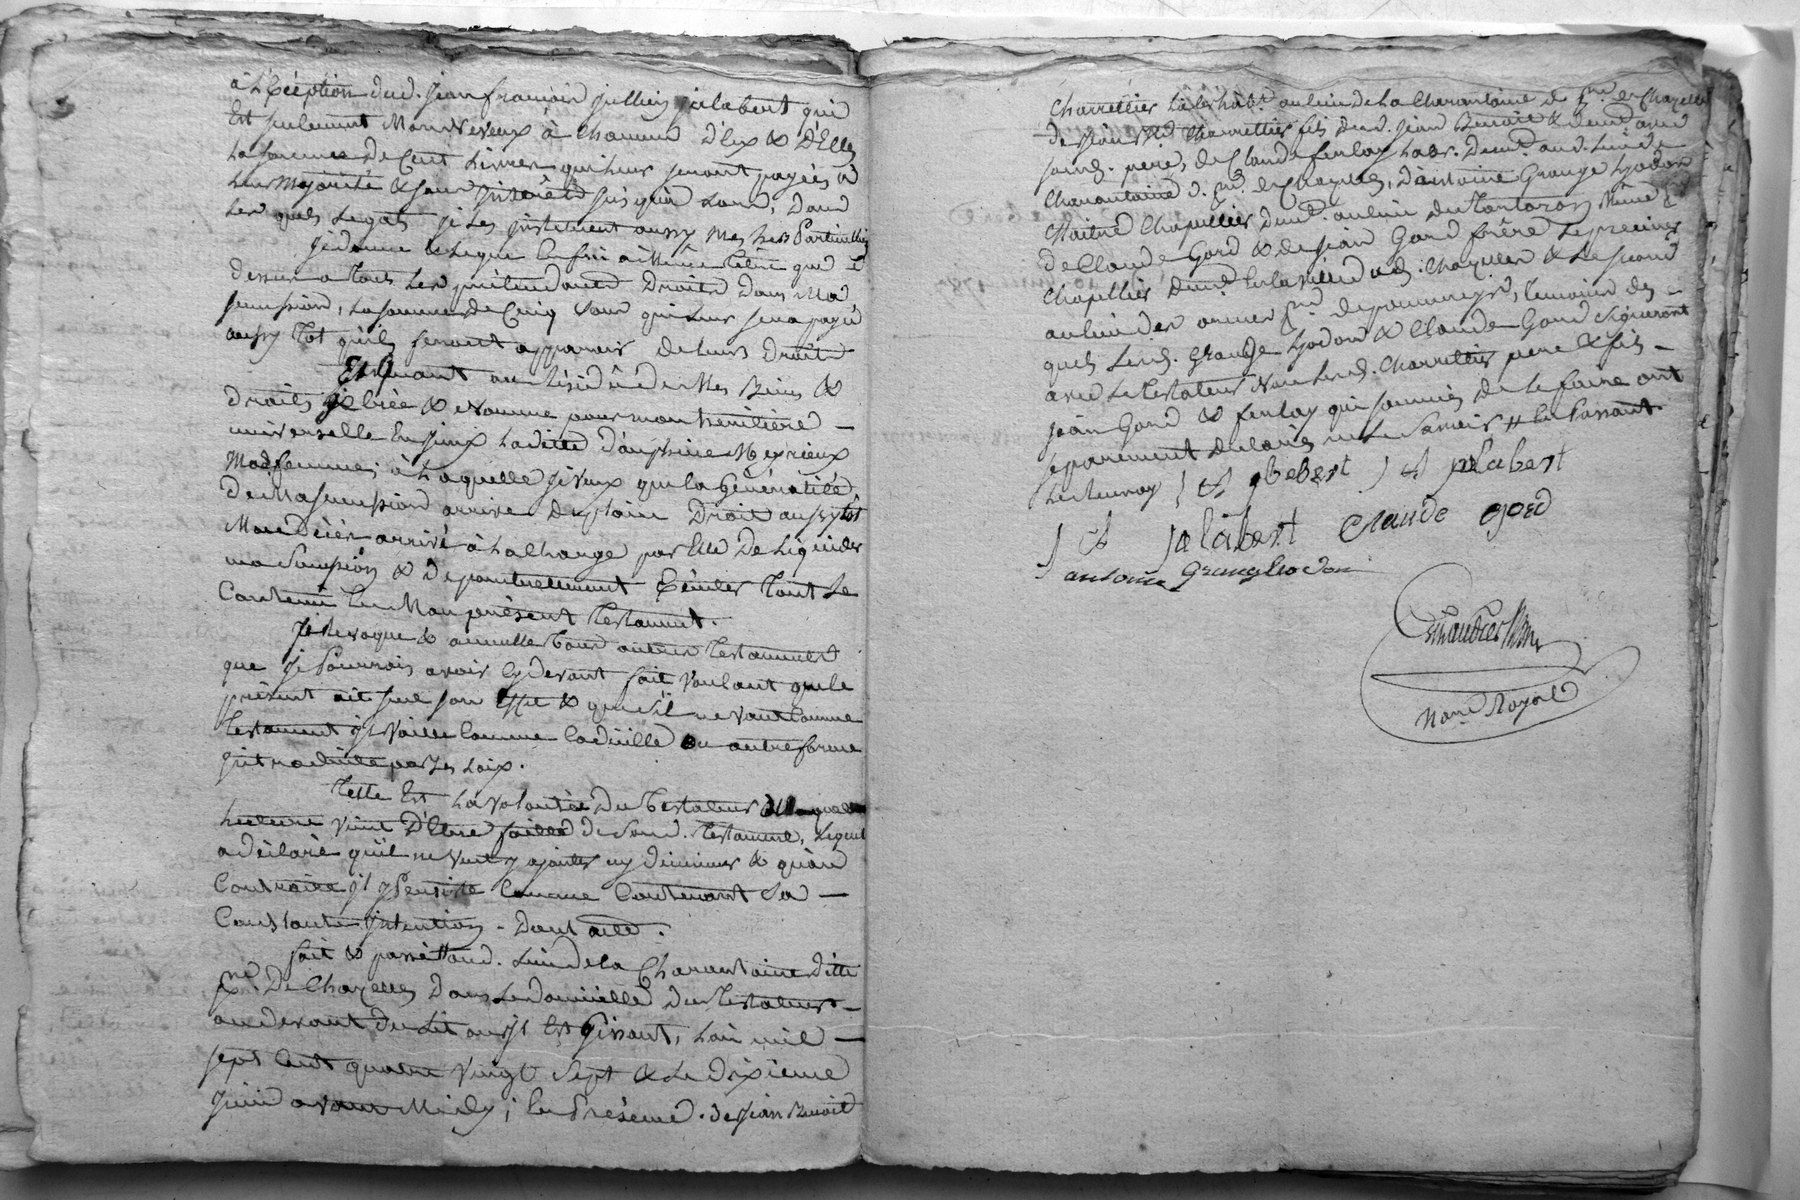 à L'Exception dud. jean françois jullien jalabert qui
Est seulement Mon Neveux à chacun d'Eux & d'Elles
La somme de Cent Livres qui leur seront payées à
leur Majorité & sans Interêts jusqu'à Lors, Dans
Les quels Legats je Les institue aussy mes her. Particulliers
Je donne & Legue Enfin à Même Titre que
dessus a Tous Les prétendants Droits Dans Ma
succession, La somme de Cinq sous qui Leur sera payé
aussy Tot qu'ils seront apparoir de Leurs Droits
Et Quant au Résidû de Mes Biens &
Droits je Crée & Nomme pour mon héritière
universelle Laditte Dauphine Meyrieux
Ma femme, à Laquelle je Veux que la Généralité
De Ma succession arrive de plain Droit aussytôt
Mon Décès arrivé à La Charge par Elle De Liquider
ma Succession & De ponctuellement Executer Tout Le
Contenu En Mon présent Testament.
Je Revoque & annulle Tous autres Testaments
que je Pourrois avoir Cy devant fait Voulant que le
présent ait seul son Effet & que s'il ne Vaut Comme
Testament il Vaille Comme Codicille ou autre forme
introduitte par Les Loix.
Telle Est La volontée Du Testateur à laquelle
lecture vient D'Etre faitte de Sond. Testament, Lequel
a déclaré qu'il ne Veut y ajouter ny diminuer & qu'au
Contraire il y Persiste Comme Contenant Sa
Constante Intention - Dont acte.
fait & passé aud. Lieu de la Charantaine ditte
psse. De Chazelles Dans Le domicille du Testateur
au devant du Lit ou il Est Gissant, L'an mil
sept Cent quatre Vingt Sept & Le Dixième
Juin avant Midy, En Présence de jean Benoit
Charrettier habt. au lieu de La Charantaine d. psse. de Chazelles
de jean Charrettier fils dud. jean Benoit & demt. avec
sond. pere, de Claude ferlay Demt. aud. Lieu de
Charantaine d. psse. de Chazelles, d'antoine Grange hodon
Maitre Chapellier demt. au lieu du Même psse.
de Claude Gord & de jean Gord frère Le premier
Chapellier Demt. En la Ville dud. Chazelles & Le second
au lieu des psse. de pommeys, Temoins des
quels Lesd. Grange hodon & Claude Gord Signeront
avec Le Testateur Non Lesd. Charrettier pere & fils
jean Gord & ferlay qui sommés de le faire ont
séparement declarés ne Le Savoir // En Passant
Jalabert
Jalabert Claude gord
antoine Grangehodon
Nore. Royal